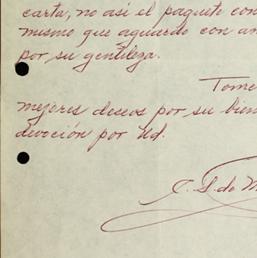 carta, no así el paquete con
mismo que aguardo con an
por su gentileza.
Tome
mejores deseos por su bien
devoción por Ud.
C. S. de M